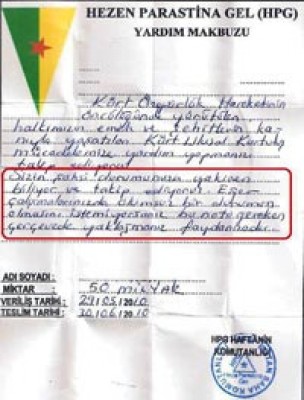 HEZEN PARASTİNA GEL (HPG)
YARDIM MAKBUZU
Kürt Özgürlük Hareketinin
öncülüğünde yürütülen
halkımızın emek ve şehitlerin ka-
nıyla yaşatılan Kürt Ulusal Kurtuluş
mücadelemize yardım yapmanızı
talep ediyoruz
Sizin şahsi durumunuzu yakinen
biliyor ve takip ediyoruz. Eğer
çalışmalarınızda olumsuz bir durumun
olmasını istemiyorsanız bu nota gereken
çerçevede yaklaşmanız faydanızadır.
ADI SOYADI :
MİKTAR : 50 MİLYAR
VERİLİŞ TARİHİ : 29/05/2010
TESLİM TARİHİ : 30/06/2010
HPG HAFTANİN
KOMUTANLIĞI